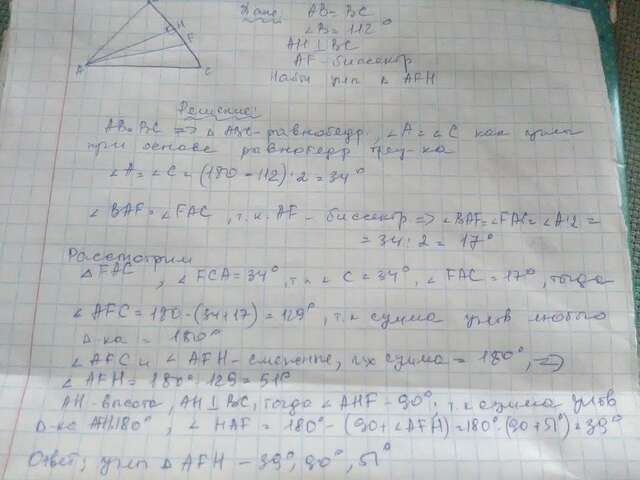 Дано: AB = BC
∠B = 112°
AH ⊥ BC
AF - биссектр
Найти углы Δ AFH
A
H
F
C
Решение:
AB = BC => Δ ABC - равнобедр, ∠A = ∠C как углы
при основе равнобедр треу-ка
∠A = ∠C = (180 - 112) : 2 = 34°
∠BAF = ∠FAC, т.к. AF - биссектр => ∠BAF = ∠FAC = ∠A:2 =
= 34 : 2 = 17°
Рассмотрим
Δ FAC, ∠FCA = 34°, т.к ∠C = 34°, ∠FAC = 17°, тогда
∠AFC = 180 - (34+17) = 129°, т.к сумма углов любого
Δ-ка = 180°
∠AFC и ∠AFH - смежные, их сумма = 180°, =>
∠AFH = 180° - 129 = 51°
AH - высота, AH ⊥ BC, тогда ∠AHF - 90°, т.к сумма углов
Δ-ка AH 180°, ∠HAF = 180° - (90 + ∠AFH) = 180° - (90 + 51°) = 39°
Ответ; углы Δ AFH - 39°, 90°, 51°